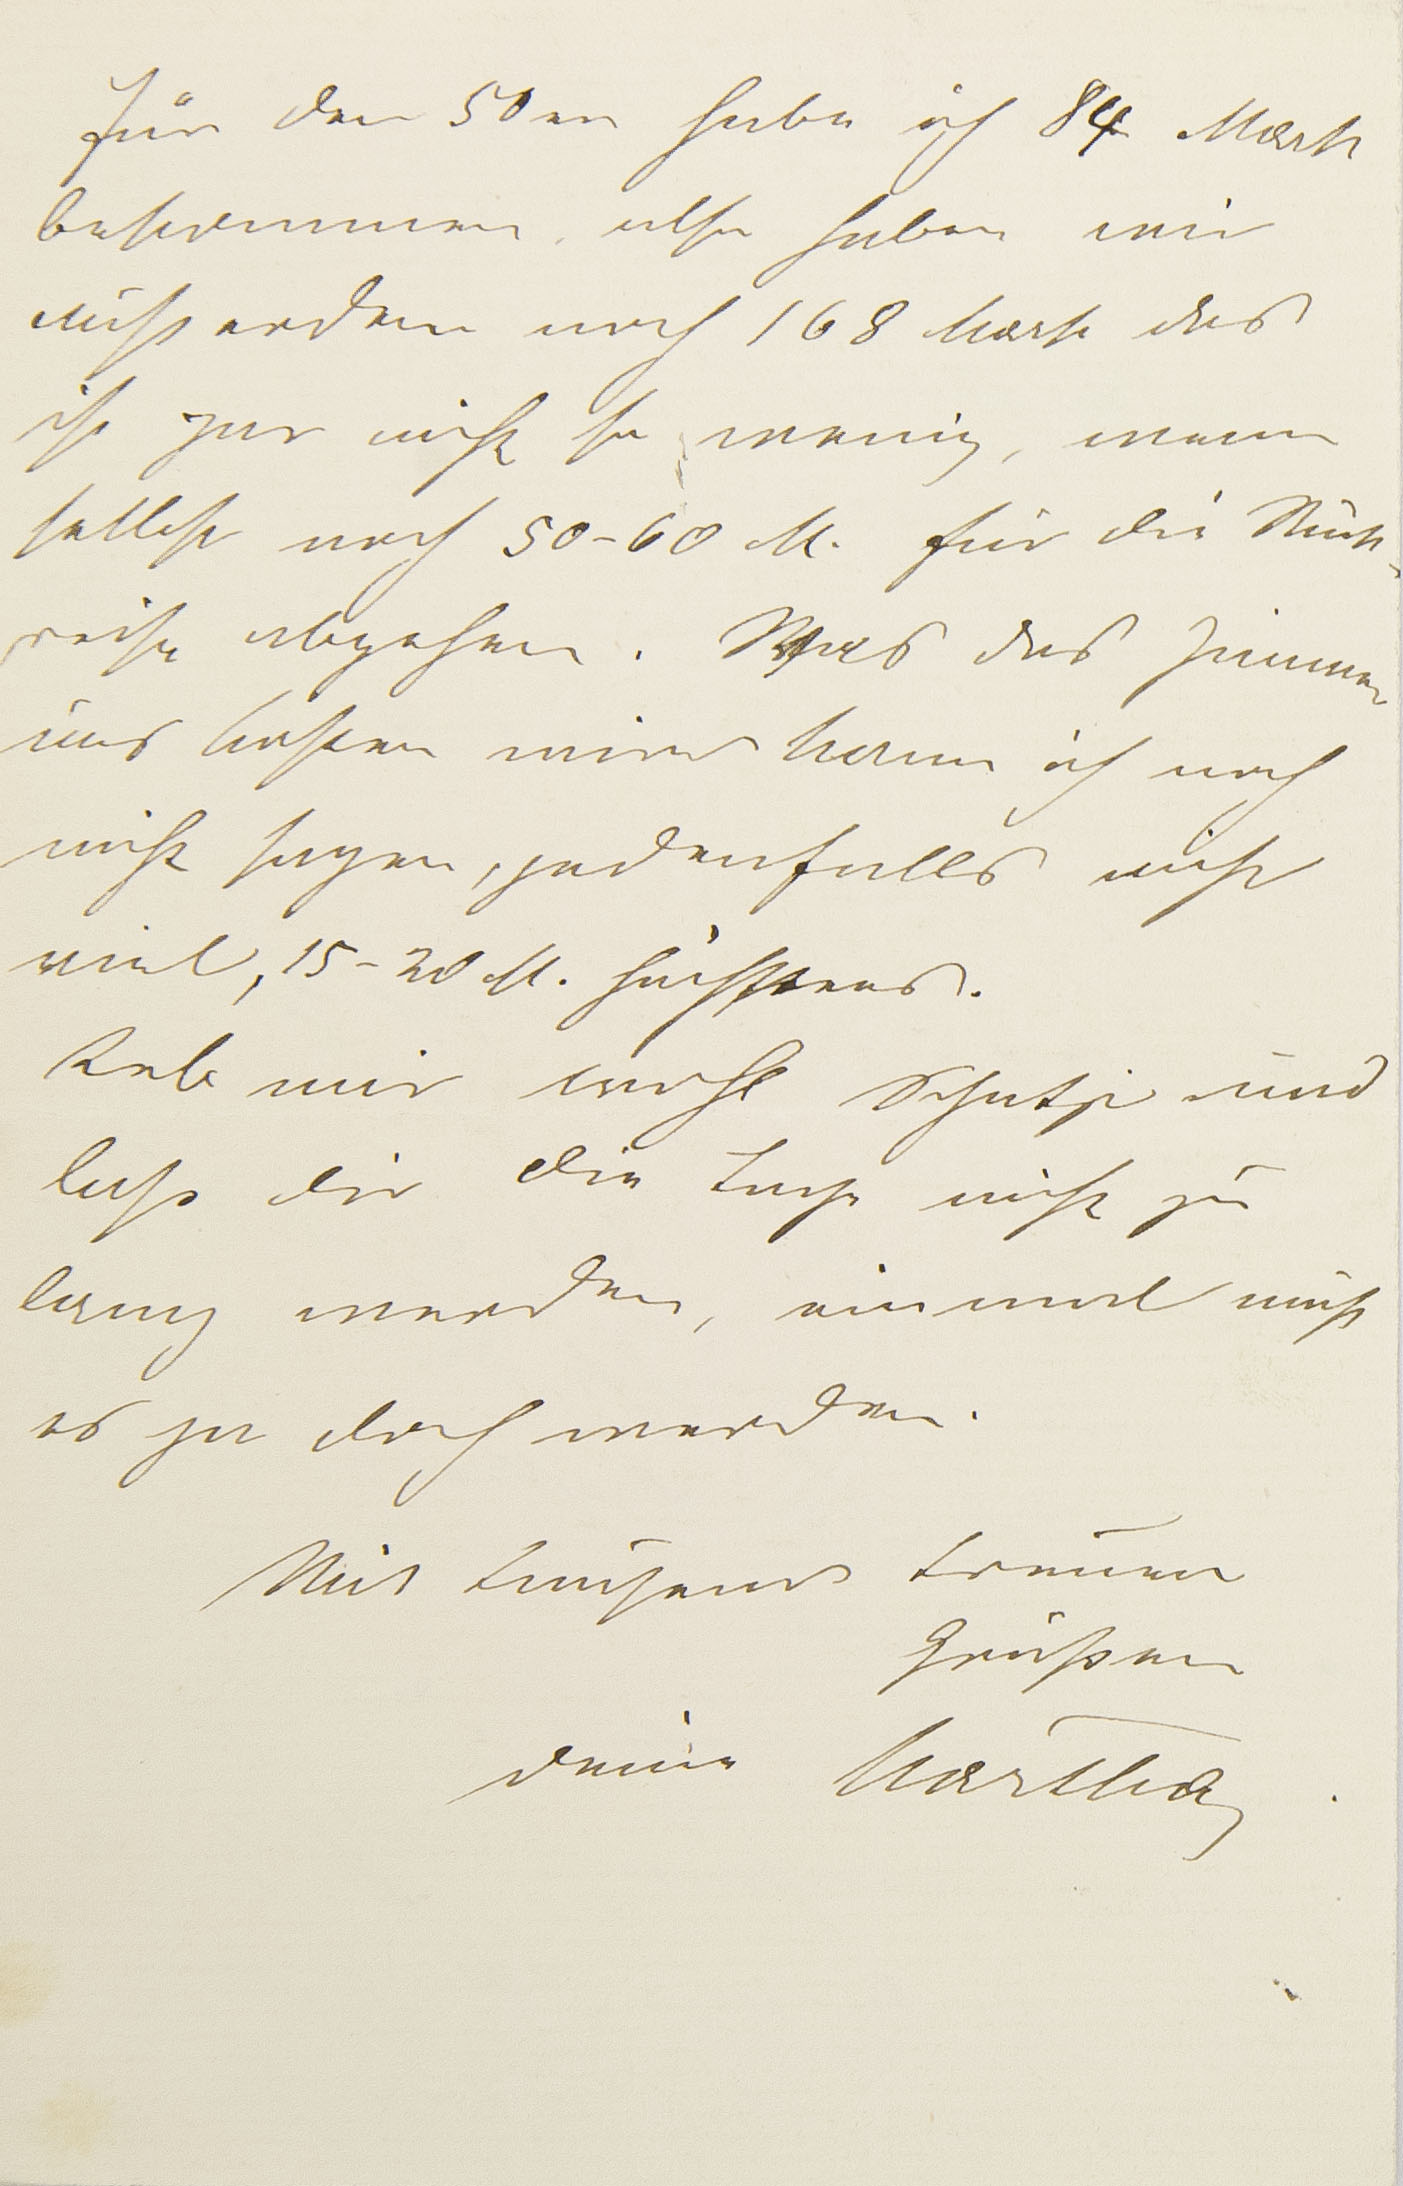 Für den 50er habe ich 84 Mark
bekommen, also haben wir
außerdem noch 168 Mark das
ist gar nicht so wenig, wenn
selbst noch 50-60 M. für die Rück-
reise abgehen. Was das Zimmer
uns kosten wird kann ich noch
nicht sagen, jedenfalls nicht
viel, 15-20 M. höchstens.
Leb mir wohl Schatzi und
lass dir die Tage nicht zu
lang werden, einmal muß
es ja doch werden.
Mit tausend treuen
Grüßen
deine Martha